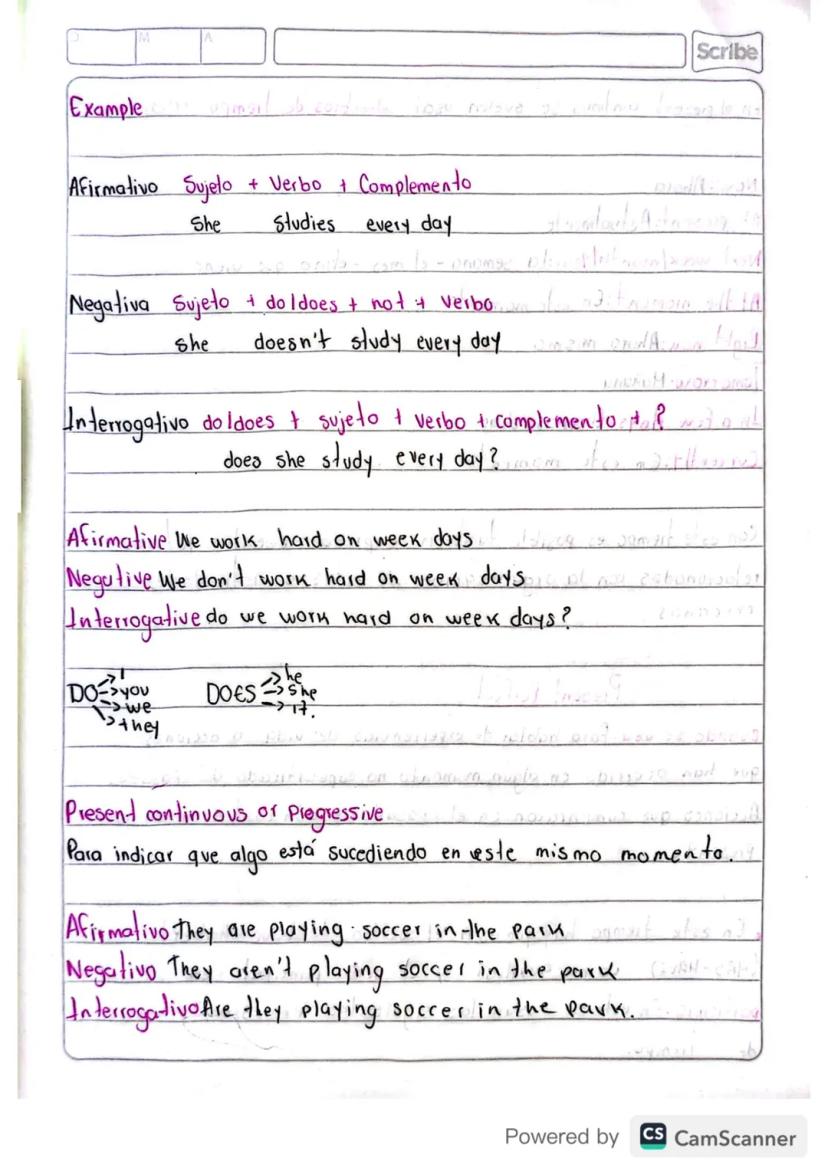 C M A
Scribe
Example
Afirmativo Sujeto + Verbo + Complemento
She Studies every day
Negativa Sujeto + do/does + not + verbo
she doesn't study every day
Interrogativo do/does + sujeto + verbo + complemento + ?
does she study every day?
Afirmative We work hard on week days
Negative We don't work hard on week days
Interrogative do we work hard on week days?
DO -> I -> you -> we -> they DOES -> he -> she -> it.
Present continuous or Progressive
Para indicar que algo está sucediendo en este mismo momento.
Afirmativo They are playing soccer in the park
Negativo They aren't playing soccer in the park
Interrogativo Are they playing soccer in the park.
Powered by CS CamScanner